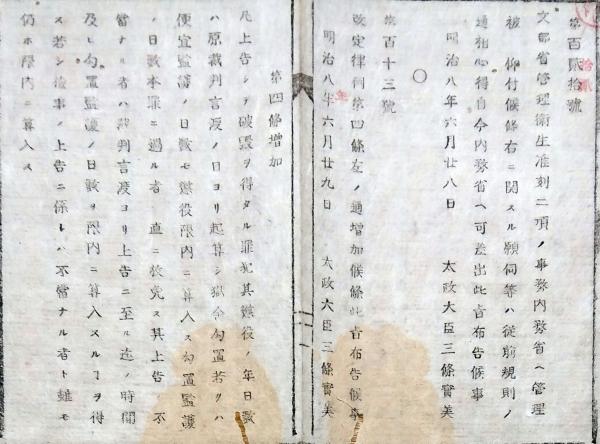 第百貳拾號
文部省管理衛生准刻二項ノ事務内務省ヘ管理
被 仰付候條右ニ関スル願伺等ハ従前規則ノ
通相心得自今内務省ヘ可差出此旨布告候事
明治八年六月廿八日 太政大臣三條實美
〇
第百十三號
改定律例第四條左ノ通増加候條此旨布告候事
明治八年六月廿九日 太政大臣三條實美
第四條増加
凡上告シテ破毀ヲ得タル罪犯其懲役ノ年日數
ハ原裁判言渡ノ日ヨリ起算シ獄舎勾置若クハ
便宜監護ノ日數モ懲役限内ニ算入ス勾置監護
ノ日數本罪ニ過ル者ハ直ニ放免ス其上告 不
當ナル者ハ裁判言渡ヨリ上告ニ至ル迄ノ時間
及ヒ勾置監護ノ日數ヲ限内ニ算入スルヿヲ得
ス若シ檢事ノ上告ニ係レハ不當ナル者ト雖モ
仍ホ限内ニ算入ス